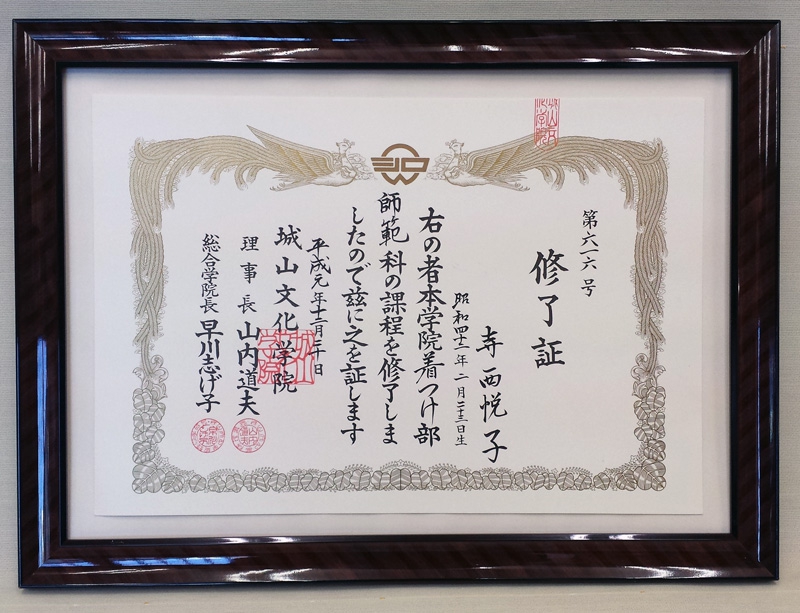 第六一六号
修了証
寺西悦子
昭和四十一年二月二十三日生
右の者本学院着つけ部
師範科の課程を修了しま
したので茲に之を証します
平成元年十一月二十日
城山文化学院
理事長 山内道夫
総合学院長 早川志げ子